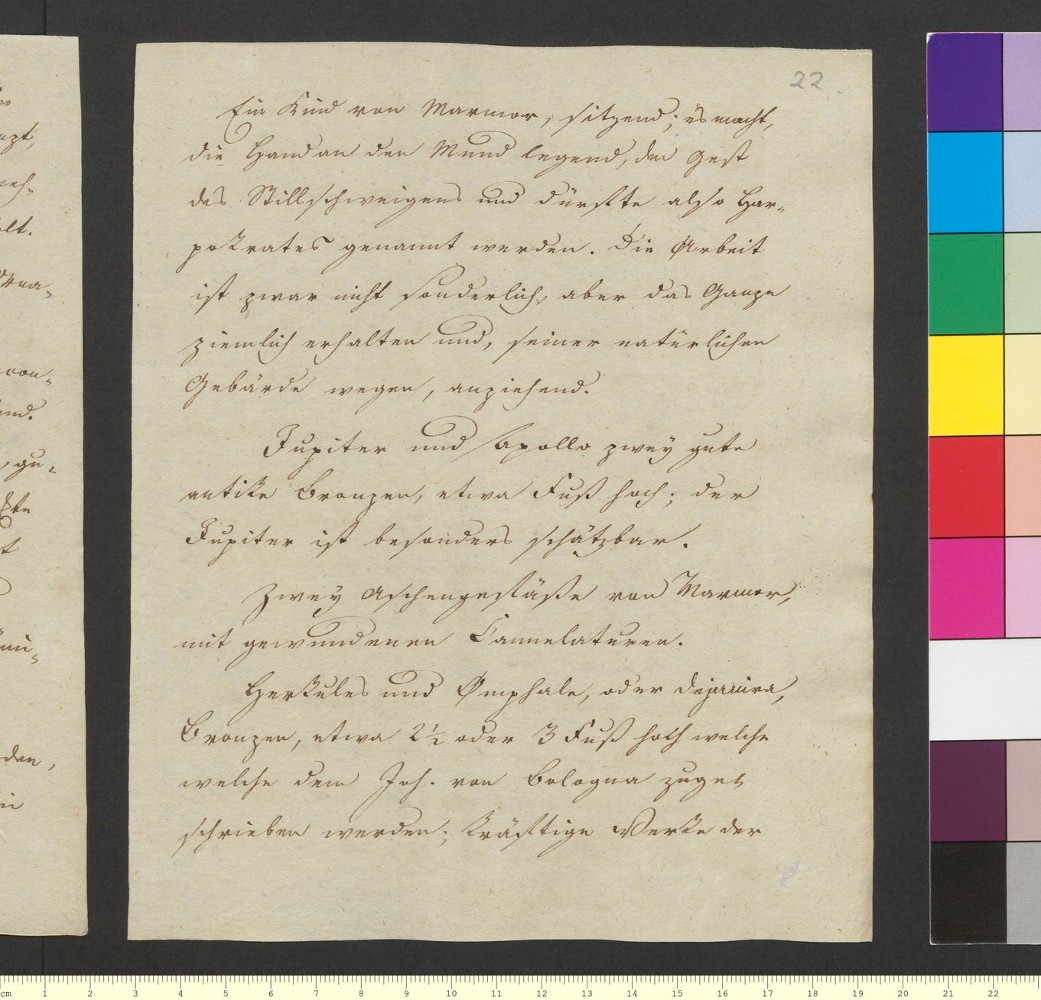 22.
Ein Kind von Marmor, sitzend; es macht,
die Hand an den Mund legend, den Gest
des Stillschweigens und dürfte also Har-
pokrates genannt werden. Die Arbeit
ist zwar nicht sonderlich, aber das Ganze
ziemlich erhalten und, seiner natürlichen
Gebärde wegen, anziehend.
Jupiter und Apollo zwey gute
antike Bronzen, etwa Fuß hoch; der
Jupiter ist besonders schätzbar.
Zwey Aschengefäße von Marmor,
mit gewundenen Cannelaturen.
Herkules und Omphale, oder Dejanira,
Bronzen, etwa 2½ oder 3 Fuß hoch welche
welche dem Joh. von Bologna zuge-
schrieben werden; kräftige Werke der